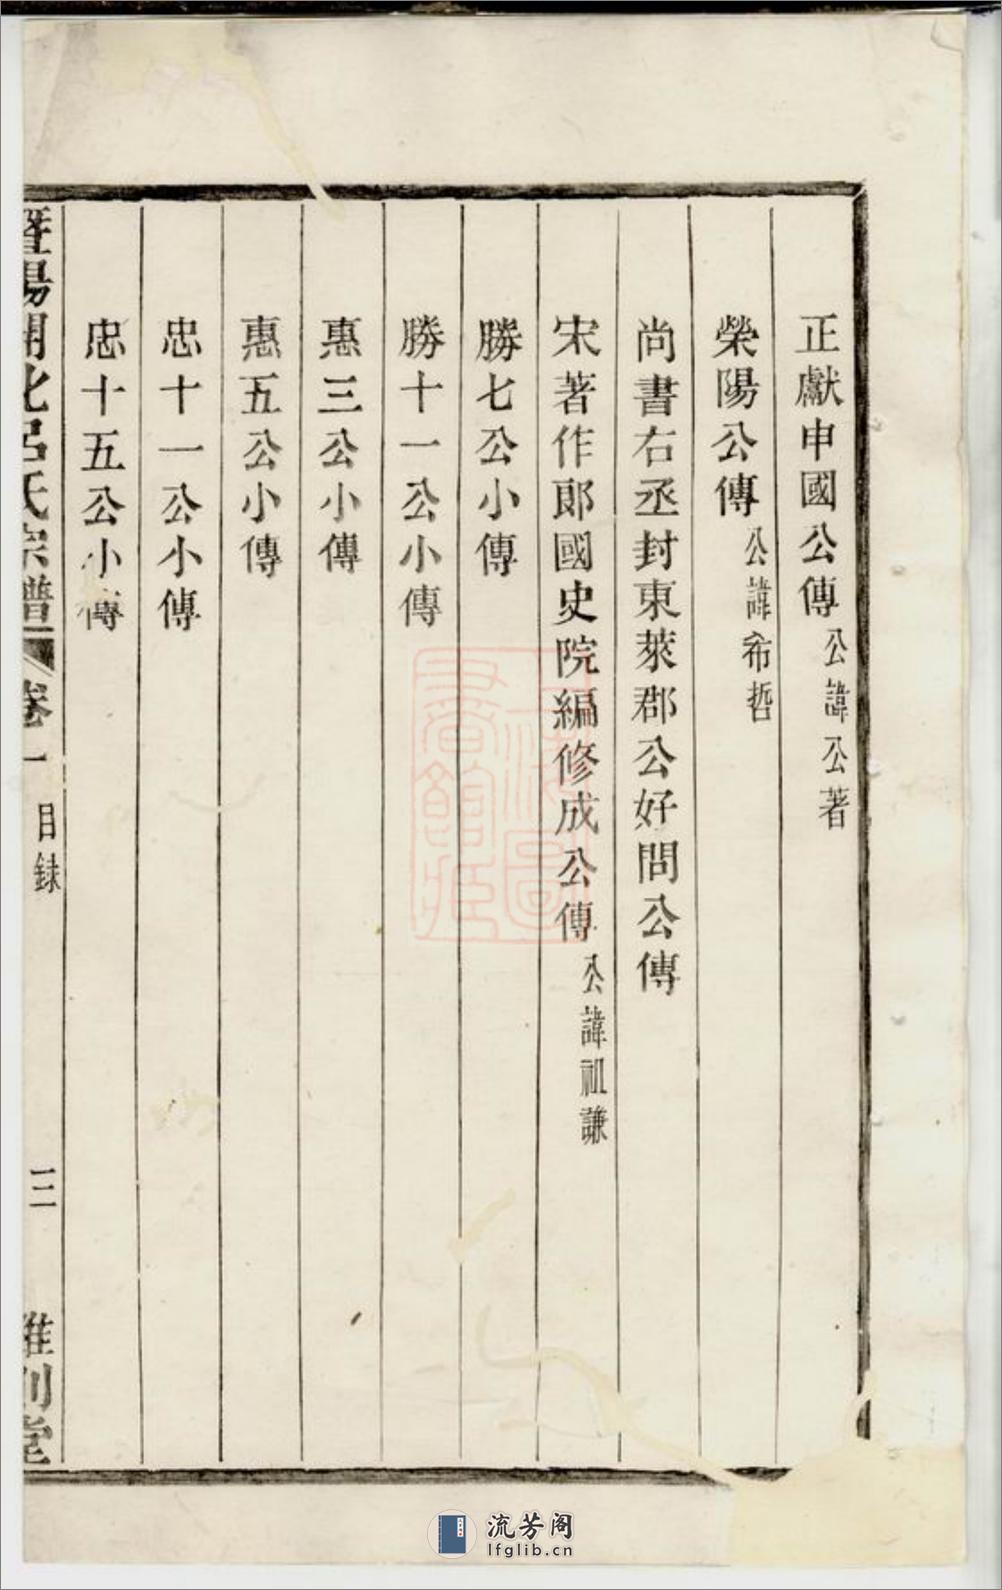 正獻申國公傳 公諱公著
榮陽公傳 公諱希哲
尚書右丞封東萊郡公好問公傳
宋著作郎國史院編修成公傳 公諱祖謙
勝七公小傳
勝十一公小傳
惠三公小傳
惠五公小傳
忠十一公小傳
忠十五公小傳
暨陽開化呂氏宗譜 卷一 目録 三
上海圖書館藏
流芳阁
lfglib.cn